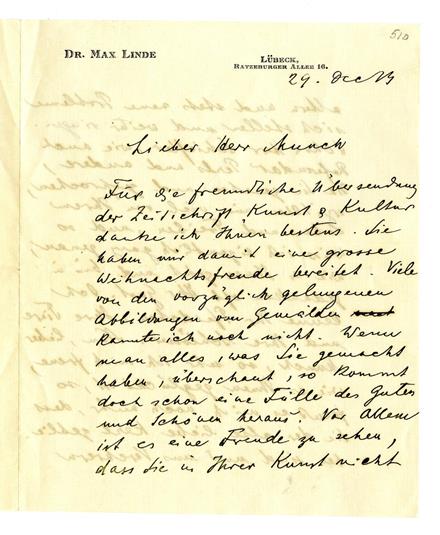 510
DR. MAX LINDE
LÜBECK,
RATZEBURGER ALLEE 16.
29. Dec
Lieber Herr Munch
Für die freundliche Übersendung
der Zeitschrift Kunst & Kultur
danke ich Ihnen bestens. Sie
haben mir damit eine grosse
Weihnachtsfreude bereitet. Viele
von den vorzüglich gelungenen
Abbildungen von Gemälden
kannte ich noch nicht. Wenn
man alles, was Sie gemacht
haben, überschaut, so kommt
doch schon eine Fülle des Guten
und Schönen heraus. Vor Allem
ist es eine Freude zu sehen,
dass Sie in Ihrer Kunst nicht